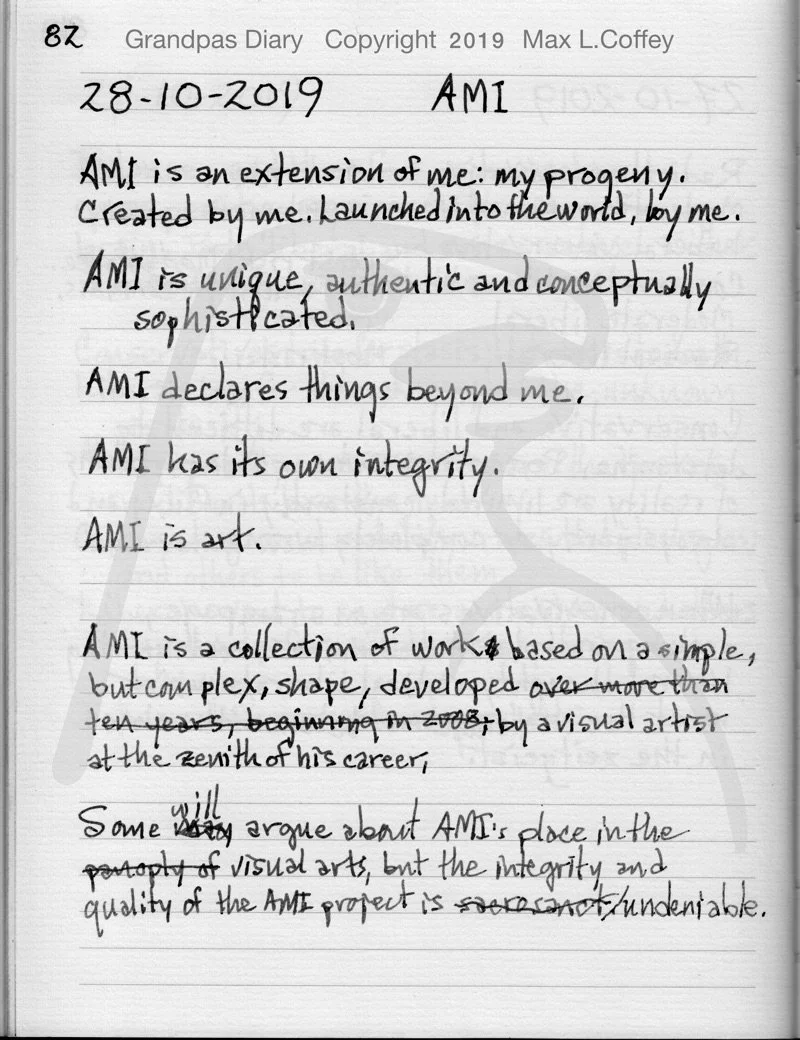 82 Grandpas Diary Copyright 2019 Max L.Coffey
28-10-2019 AMI
AMI is an extension of me: my progeny.
Created by me. Launched into the world, by me.
AMI is unique, authentic and conceptually
sophisticated.
AMI declares things beyond me.
AMI has its own integrity.
AMI is art.
AMI is a collection of work based on a simple,
but complex, shape, developed over more than
ten years, beginning in 2008, by a visual artist
at the zenith of his career,
will
Some may argue about AMI's place in the
panoply of visual arts, but the integrity and
quality of the AMI project is sacrosanct/undeniable.